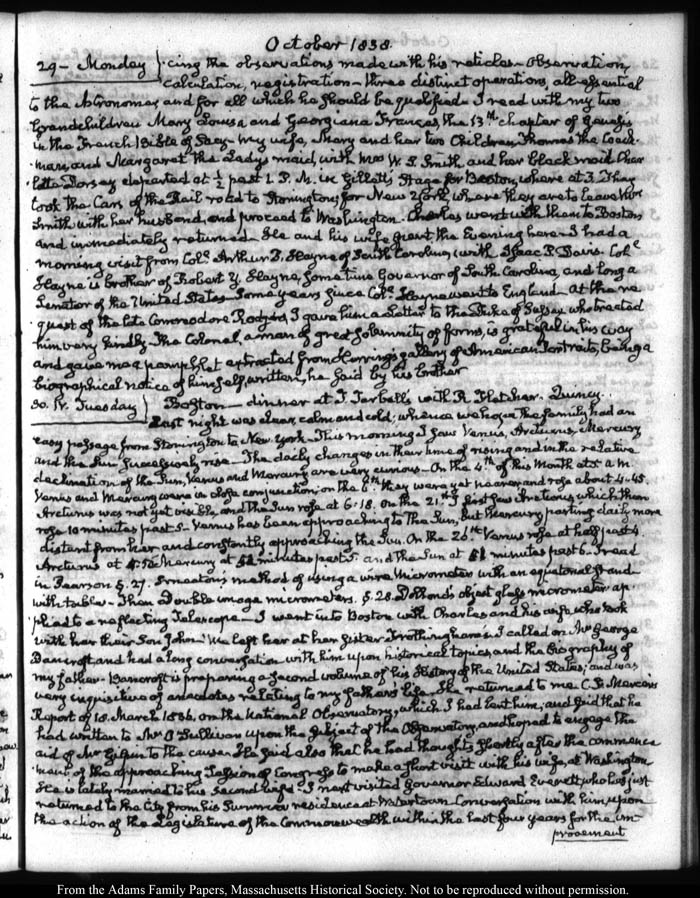 October 1838.
29 - Monday } cing the observations made with his reticles - Observation,
calculation, registration - three distinct operations, all essential
to the Astronomer, and for all which he should be qualified. I read with my two
Grandchildren Mary Louisa and Georgiana Frances, the 13th chapter of Genesis
in the French Bible of Sacy - My wife, Mary and her two Children, Thomas the Coach-
man, and Margaret the Lady's maid, with Mrs W. S. Smith, and her black maid Char
lotte Dorsey departed at ½ past 1. P. M. in Gillett's Stage for Boston, where at 3. They
took the Cars of the Rail road to Stonington, for New York, where they are to leave Mrs
Smith with her husband, and proceed to Washington. Charles went with them to Boston
and immediately returned. He and his wife spent the Evening here. I had a
morning visit from Coll. Arthur P. Hayne of South Carolina, with Isaac P. Davis. Coll
Hayne is brother of Robert Y. Hayne, sometime Governor of South Carolina, and long a
Senator of the United States - Some years since Coll. Hayne went to England. At the re
quest of the late Commodore Rodgers, I gave him a Letter to the Duke of Sussex who treated
him very kindly - The Colonel, a man of great solemnity of forms, is grateful in his way
and gave me a pamphlet extracted from Herring's gallery of American Portraits, being a
biographical notice of himself, written, he said by his brother
30. IV. Tuesday } Boston - dinner at J Tarbell's with R Fletcher. Quincy.
Last night was clear, calm and cold; whence we hope the family had an
easy passage from Stonington to New York - This morning I saw Venus, Arcturus, Mercury,
and the Sun successively rise - The daily changes in their time of rising and in the relative
declination of the Sun, Venus and Mercury are very curious - On the 4th of this Month at 5 a. m.
Venus and Mercury were in close conjunction; on the 6th they were yet nearer and rose about 4.45.
Arcturus was not yet visible, and the Sun rose at 6.18. On the 21st I first saw Arcturus, which then
rose 10 minutes past 5 - Venus has been approaching to the Sun, but Mercury parting daily more
distant from her and constantly approaching the Sun. On the 26th Venus rose at half past 4.
Arcturus at 4.50 Mercury at 52 minutes past 5 and the Sun at minutes past 6. I read
in Pearson §. 27. Smeaton's method of using a wire Micrometer with an equatorial stand
with tables - Then Double image micrometers. §. 28. Dollond's object glass micrometer ap
plied to a reflecting Telescope - I went into Boston with Charles and his wife, who took
with her their Son John. We left her at her Sister Frothingham's. I called on Mr George
Bancroft and had a long conversation with him upon historical topics, and the Biography of
my father - Bancroft is preparing a second volume of his History of the United States; and was
very inquisitive of anecdotes relating to my father's life. He returned to me C. F. Mercer's
Report of 18. March 1826, on the National Observatory, which I had lent him; and said that he
had written to Mr O'Sullivan upon the subject of the Observatory, and hoped to engage the
aid of Mr Gilpin to the cause. He said also that he had thoughts shortly after the commence
ment of the approaching Session of Congress to make a short visit with his wife, at Washington
He is lately married to his second wife. I next visited Governor Edward Everett who has just
returned to the City from his Summer residence at Watertown. Conversation with him upon
the action of the Legislature of the Commonwealth within the last four years for the im
provement
From the Adams Family Papers, Massachusetts Historical Society. Not to be reproduced without permission.